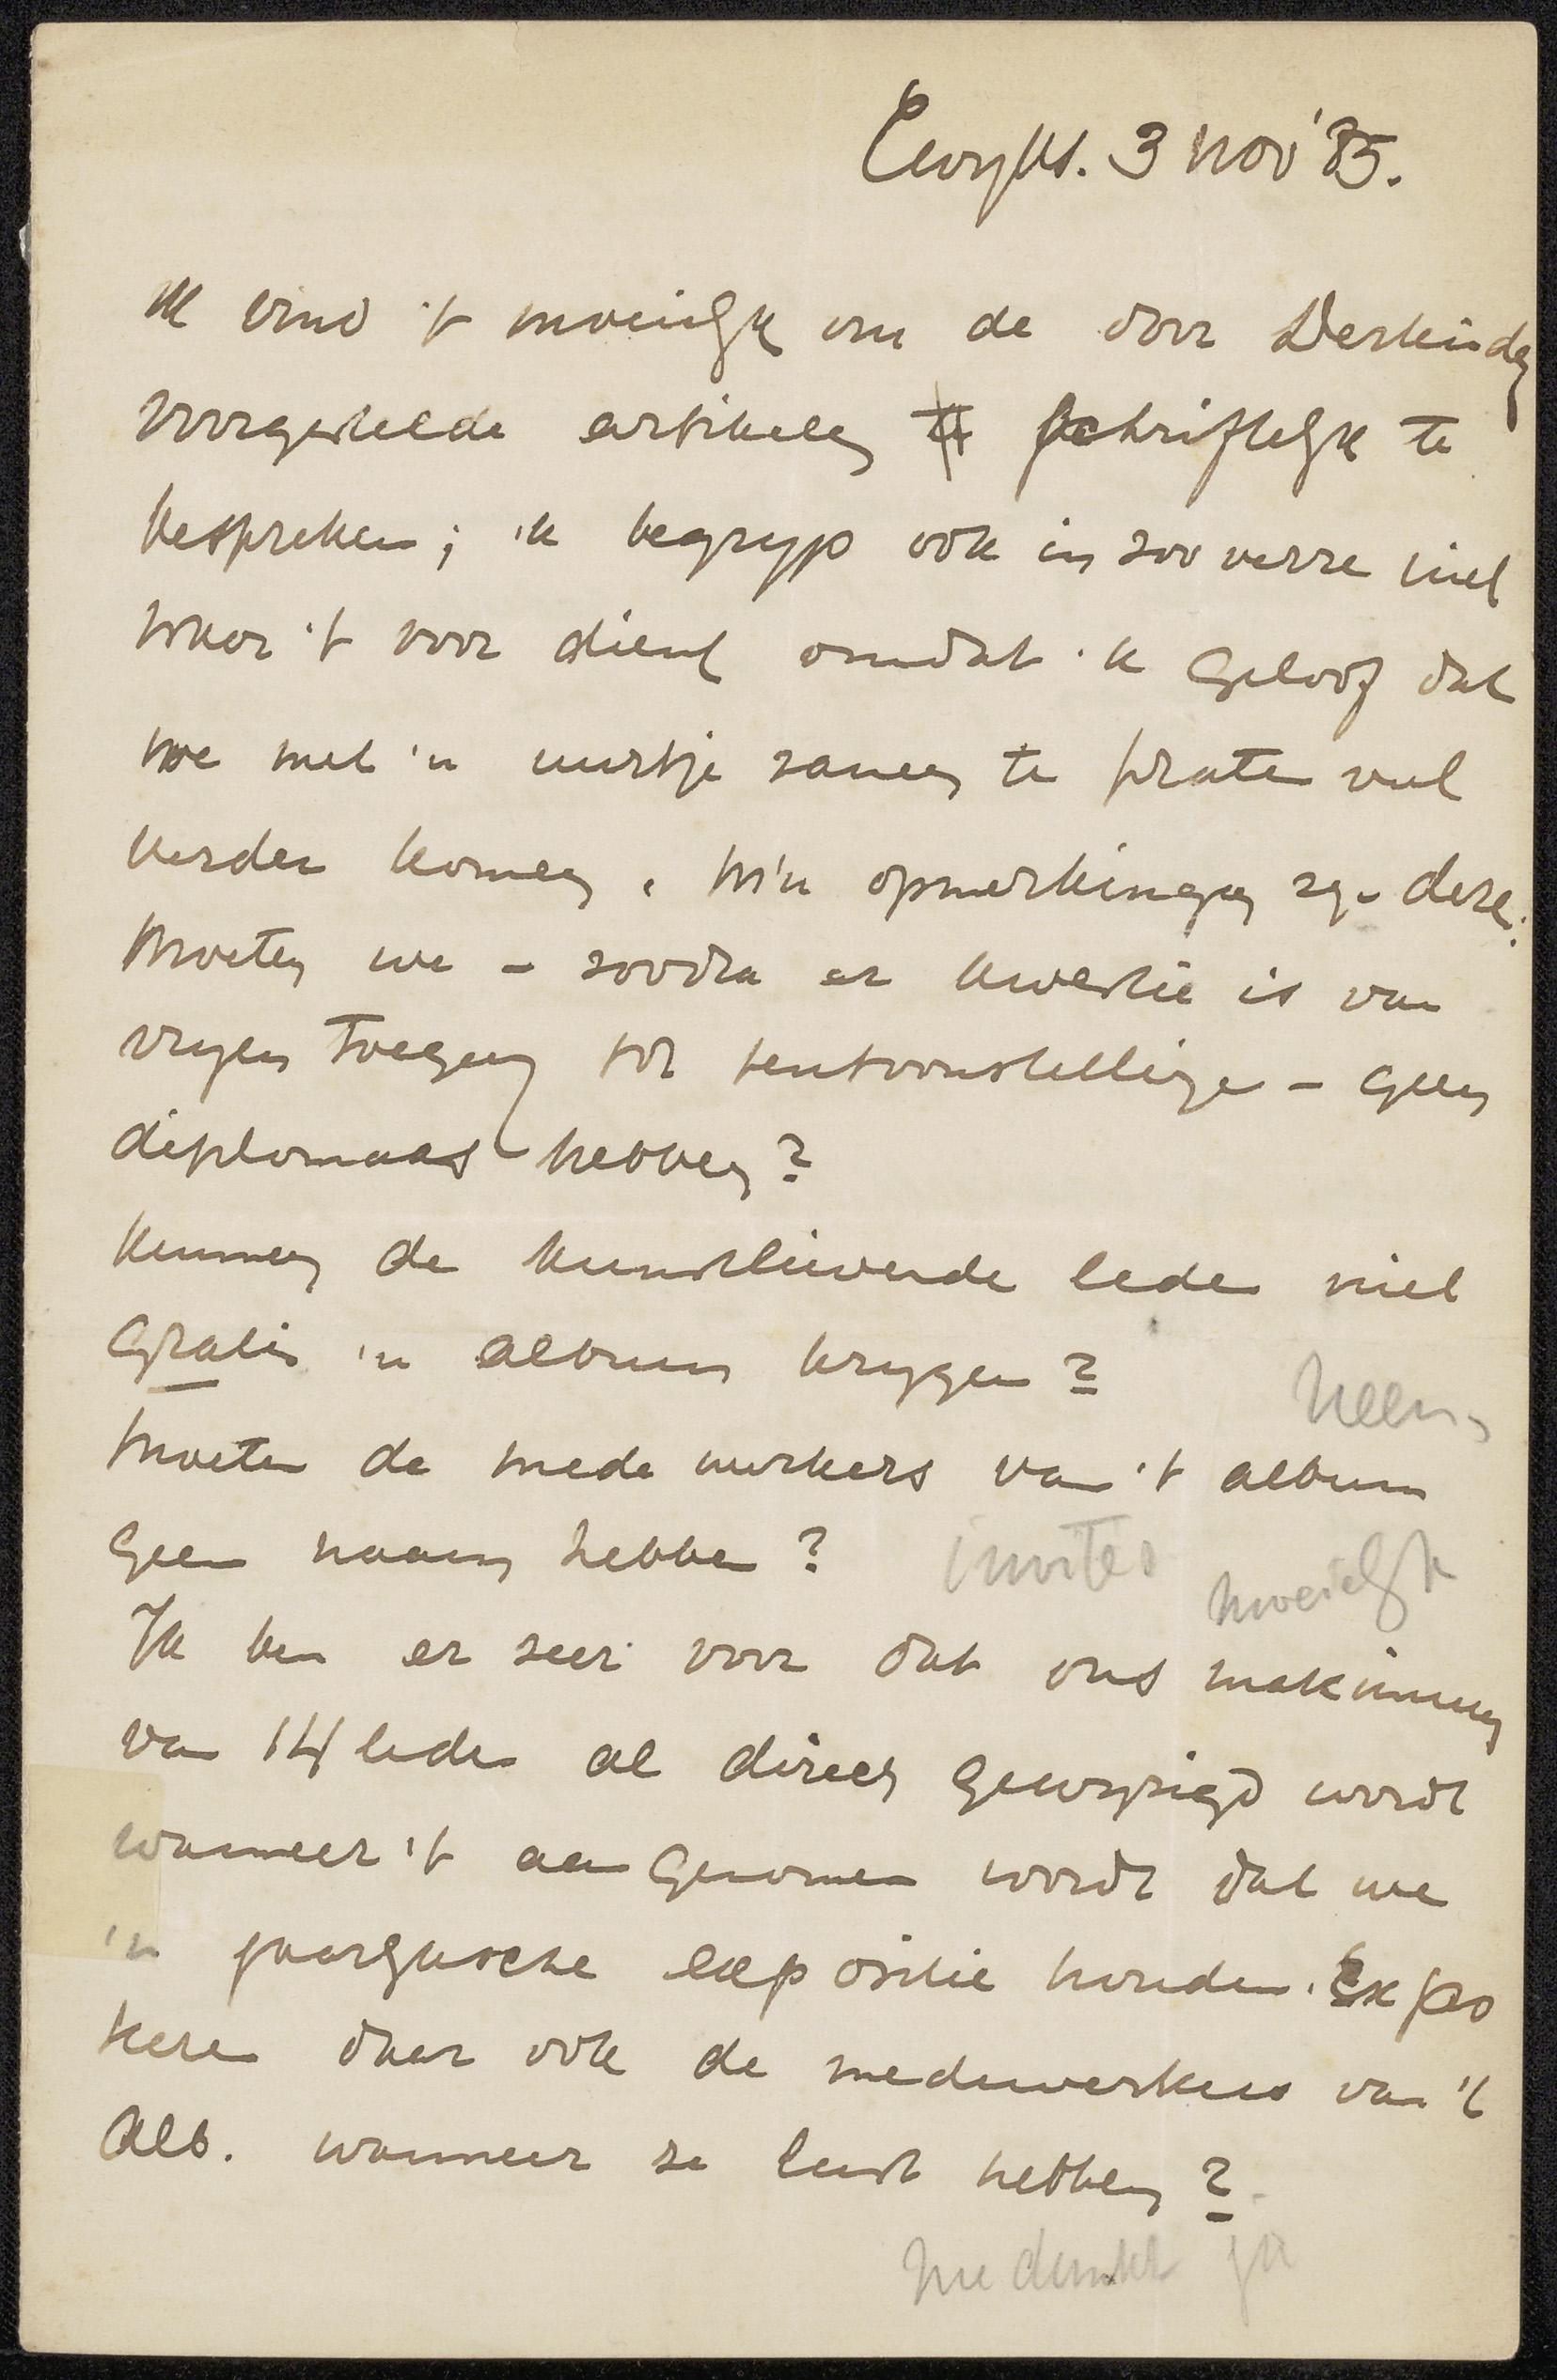 Ewijk. 3 Nov '85.
ik vind 't moeielijk om de door Derkinderen
voorgestelde artikelen schriftelijk te
bespreken; ik begrijp ook in zooverre niet
waar 't voor dient omdat ik geloof dat
we met 'n uurtje samen te praten veel
verder komen. M'n opmerkingen zijn deze:
Moeten we – zoodra er kwestie is van
vrijen toegang tot tentoonstellingen – geen
diplomaas hebben?
Kunnen de kunstlievende leden niet
gratis 'n album krijgen?
Neen
Moeten de medewerkers van 't album
geen naam hebben? invités
moeielijk
Ik ben er zeer voor dat ons maximum
van 14 leden al direct gewijzigd wordt
wanneer 't aangenomen wordt dat we
'n jaarlijksche expositie houden. Expo
seren daar ook de medewerkers van 't
Alb. wanneer ze lust hebben?
me dunkt ja